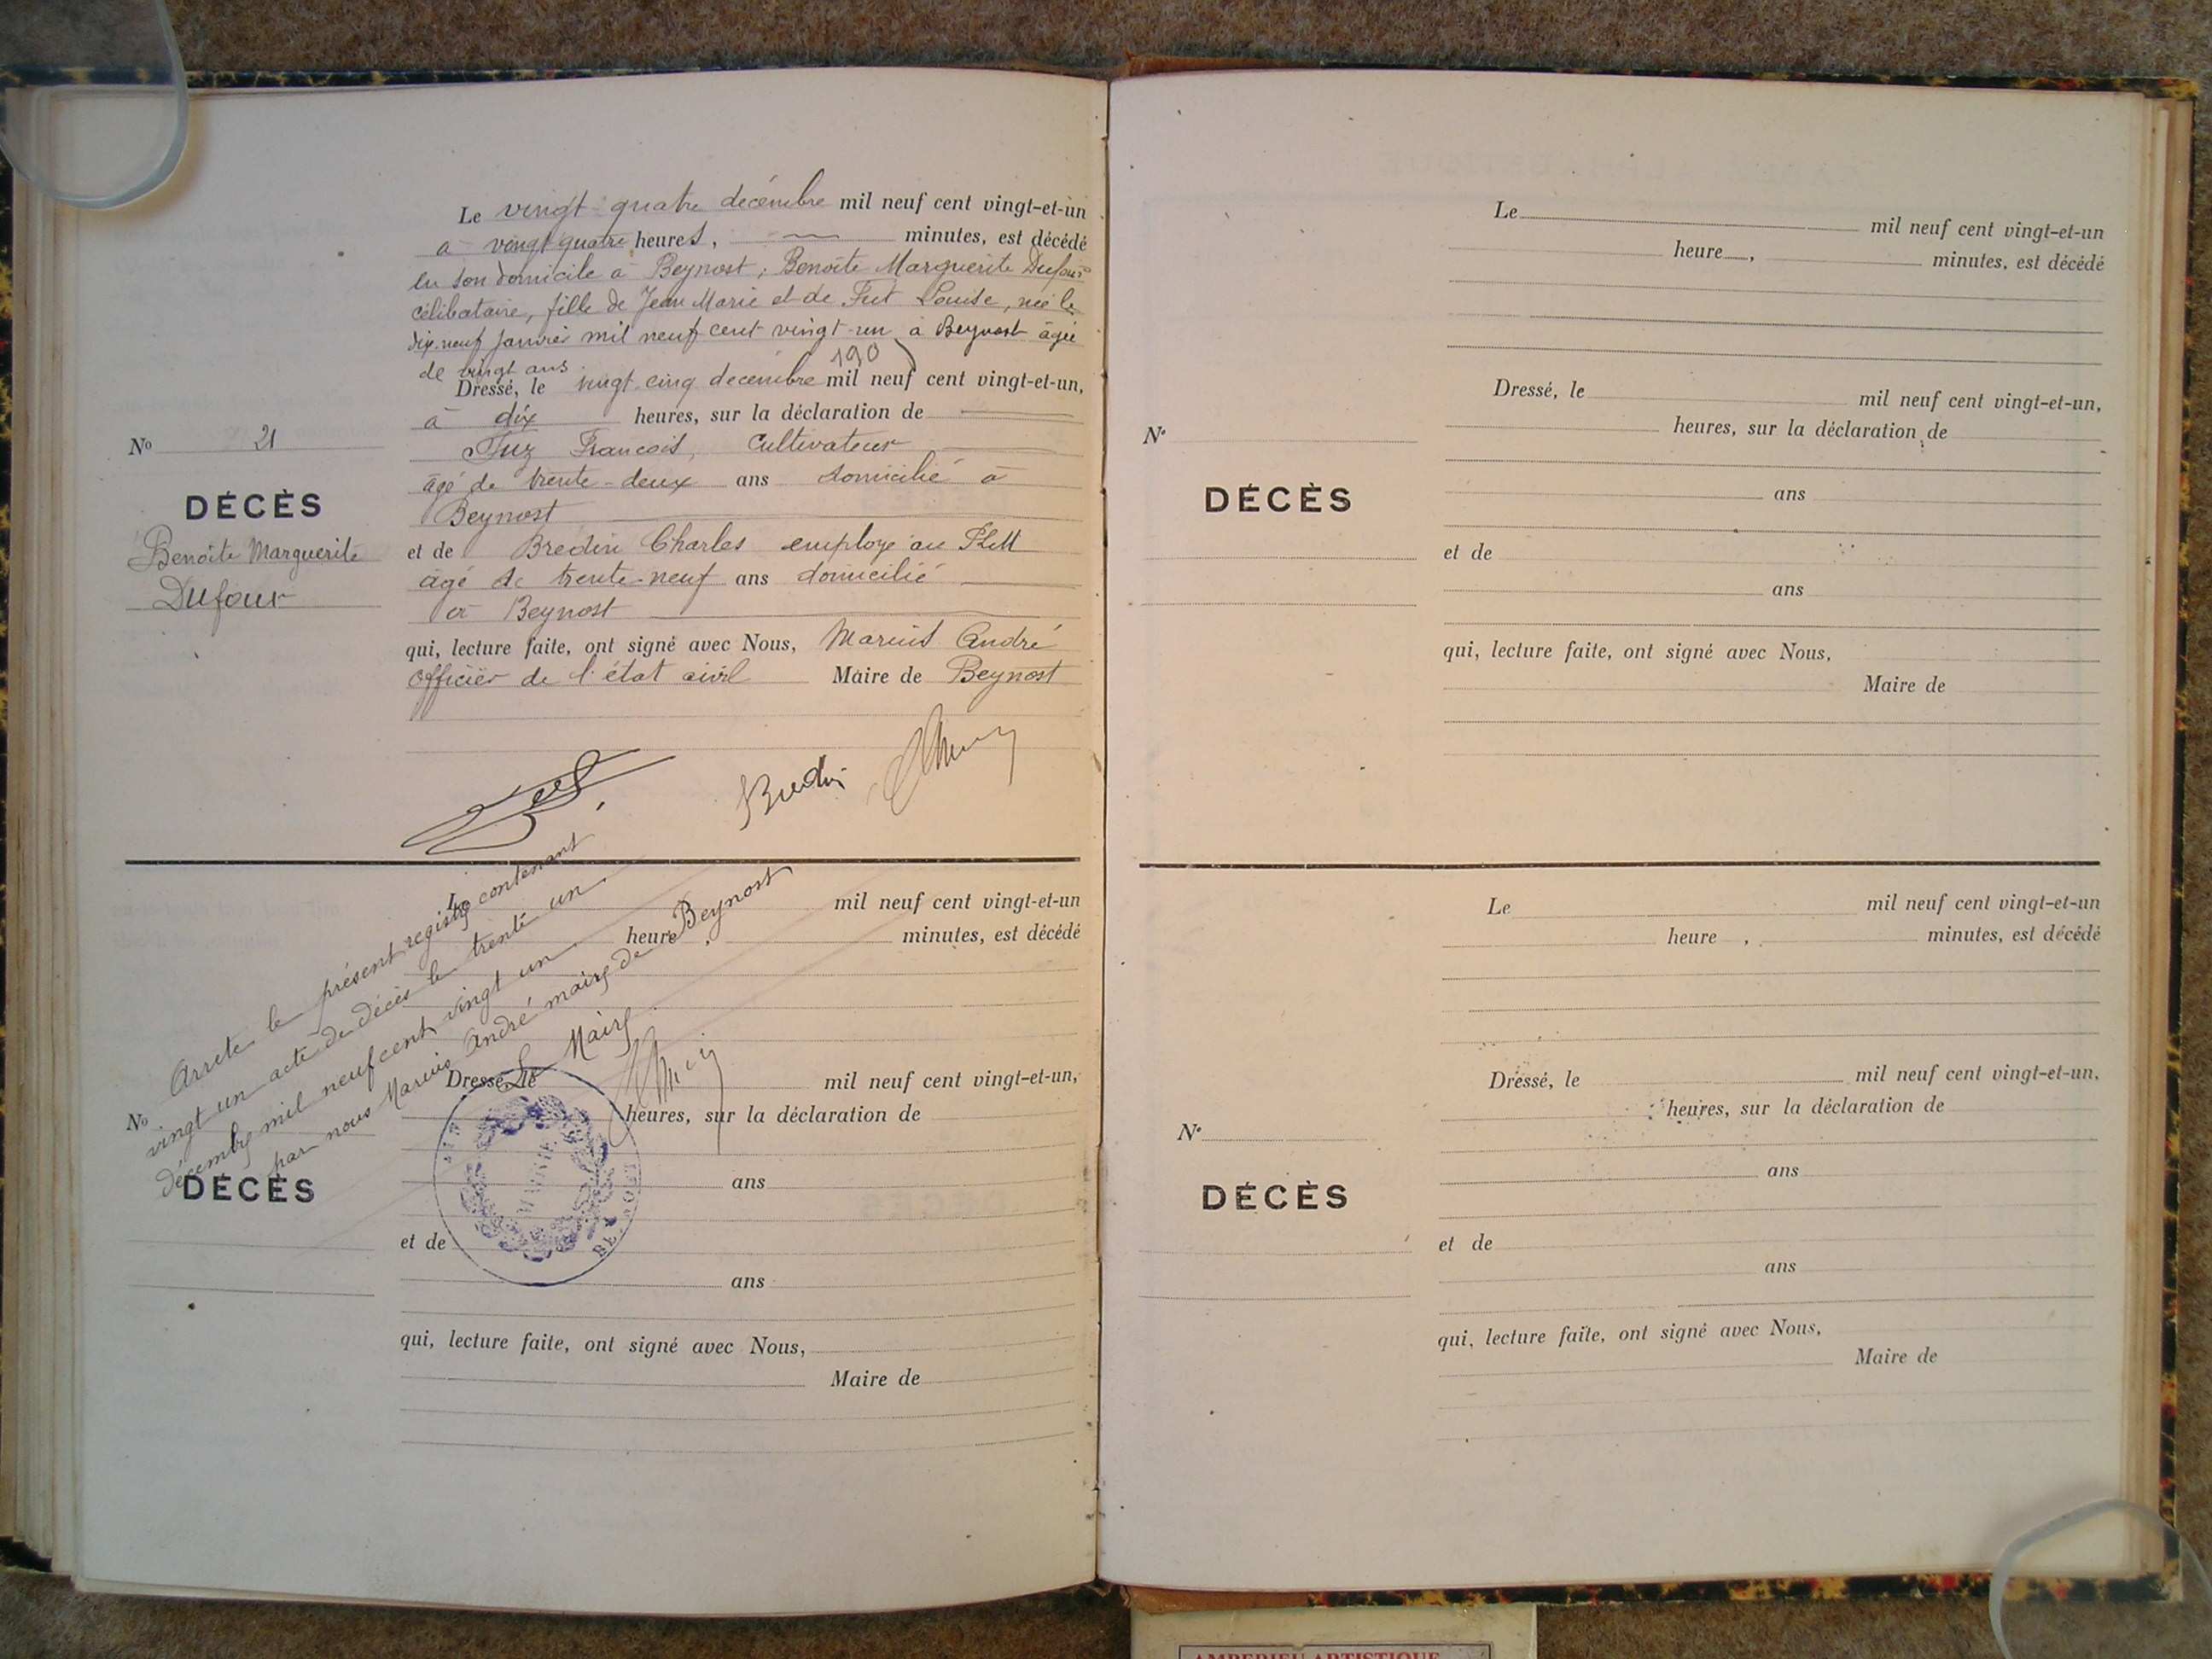 Le vingt quatre décembre mil neuf cent vingt-et-un
à vingt quatre heures, minutes, est décédé
en son domicile à Beynost, Benoîte Marguerite Dufour
célibataire, fille de Jean Marie et de Louise, née le
dix-neuf Janvier mil neuf cent vingt-un à Beynost âgée
190
de vingt ans
Dressé, le vingt cinq décembre mil neuf cent vingt-et-un,
à dix heures, sur la déclaration de
François, Cultivateur
âgé de trente-deux ans domicilié à
Beynost
et de Bredin Charles employé au
âgé de trente-neuf ans domicilié
à Beynost
qui, lecture faite, ont signé avec Nous, Marius André
Officier de l'état civil Maire de Beynost
Bredin
No 21
DÉCÈS
Benoîte Marguerite
Dufour
Arrêté le présent registre contenant
vingt un acte de décès le trente un
décembre mil neuf cent vingt un
par nous Marius André maire de Beynost
Le Maire
Le mil neuf cent vingt-et-un
heure , minutes, est décédé
Dressé, le mil neuf cent vingt-et-un,
heures, sur la déclaration de
ans
et de
ans
qui, lecture faite, ont signé avec Nous,
Maire de
No
DÉCÈS
Le mil neuf cent vingt-et-un
heure , minutes, est décédé
Dressé, le mil neuf cent vingt-et-un,
heures, sur la déclaration de
ans
et de
ans
qui, lecture faite, ont signé avec Nous,
Maire de
No
DÉCÈS
Le mil neuf cent vingt-et-un
heure , minutes, est décédé
Dressé, le mil neuf cent vingt-et-un.
heures, sur la déclaration de
ans
et de
ans
qui, lecture faite, ont signé avec Nous,
Maire de
No
DÉCÈS
AMBERIEU ARTISTIQUE